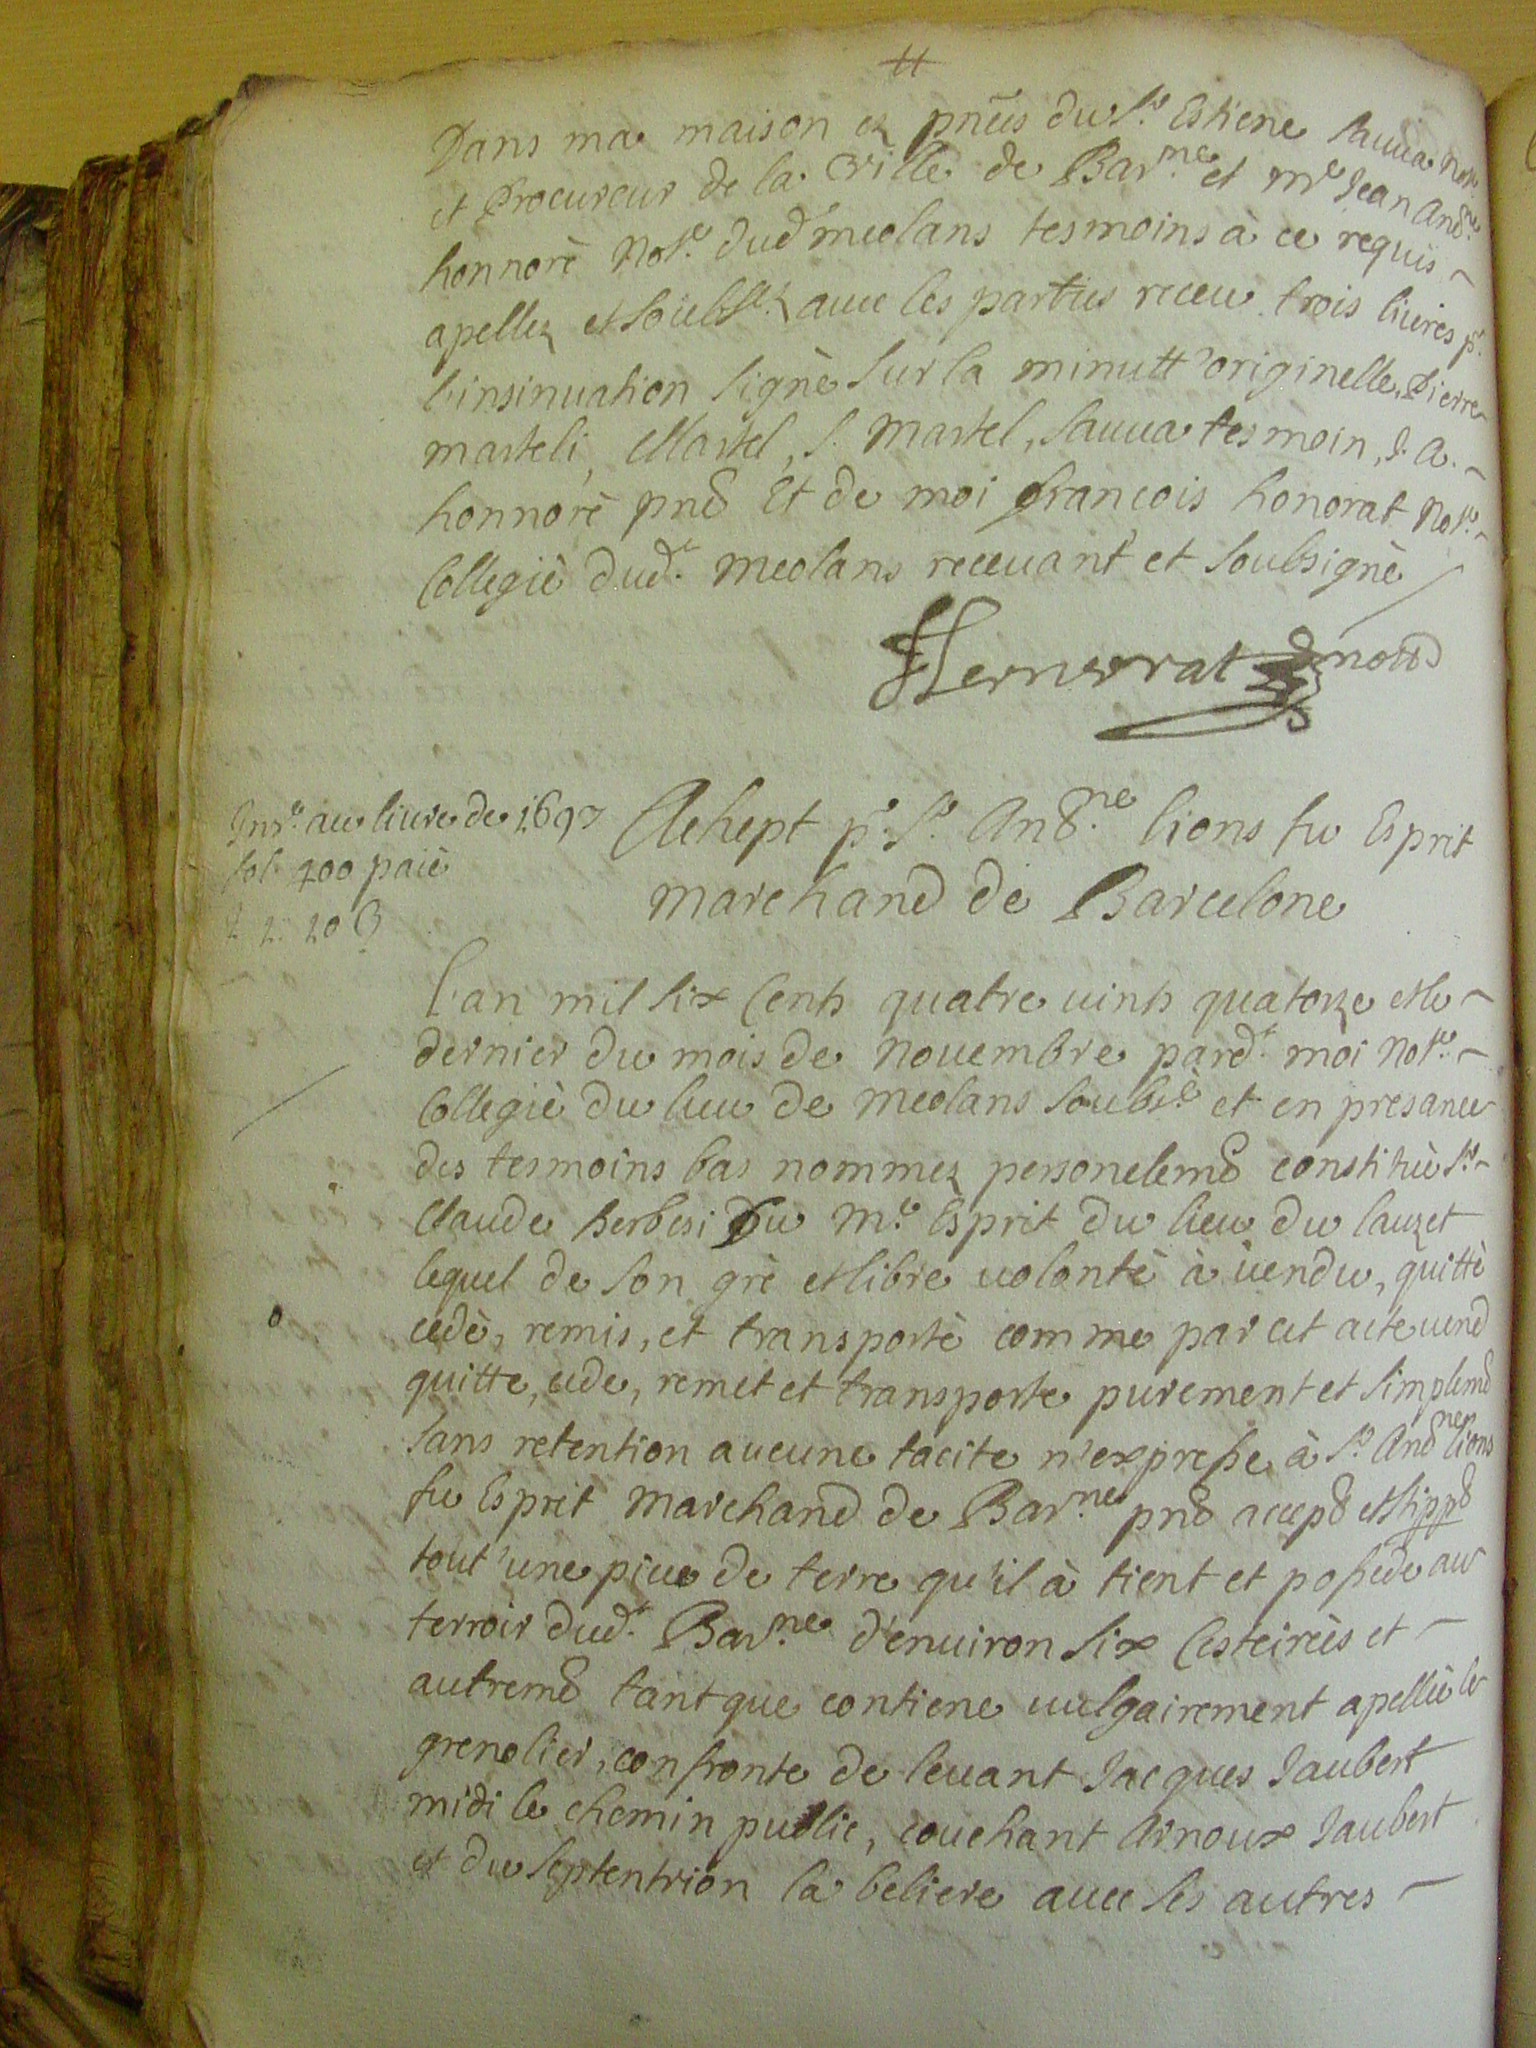 Dans ma maison ez pñces du Sr. Estiene Sauua Notre.
et Procureur de la Ville de Bar.ne et Mre Jean Andne.
honnorè Notre. dud meolans tesmoins à ce requis
apellez et soubsez. auec les parties receu trois liures pr.
l'insinuation signè sur la minutt'originelle, Pierre
marteli, Martel, S. Martel, Sauua tesmoin, J. A.
honnorè pnt Et de moi francois honorat Notre.
Collegiè dud. Meolans receuant et soubsignè
Honnorat nott
Insé. au liure de 1697
fol. 400 paiè
2. 10 s
Achept pr. Sr. And.ne lions fu Esprit
Marchand de Barcelone
L'an mil six Cents quatre uints quatorze et le
dernier du mois de Nouembre pard. moi Notre.
Collegiè du lieu de Meolans soubsè. et en presance
des tesmoins bas nommez personelemt constituè Sr.
Claude Berbesi du Me. Esprit du lieu du lauzet
lequel de son grè et libre uolontè à uendu, quittè
cedè, remis, et transportè comme par cet acte uend
quitte, cede, remet et transporte purement et simplemt
sans retention aucune tacite n'expresse à Sr. Andne lions
fu Esprit Marchand de Bar.ne pnt accept et stippt
tout'une piece de terre qu'il à tient et possede au
terroir dud. Bar.ne d'enuiron six Cesteireès et
autremt tant que contiene uulgairement apelleè le
grenolier, confronte de leuant Jacques Jaubert
midi le chemin public, couchant Arnoux Jaubert
et du septentrion la beliere auec ses autres